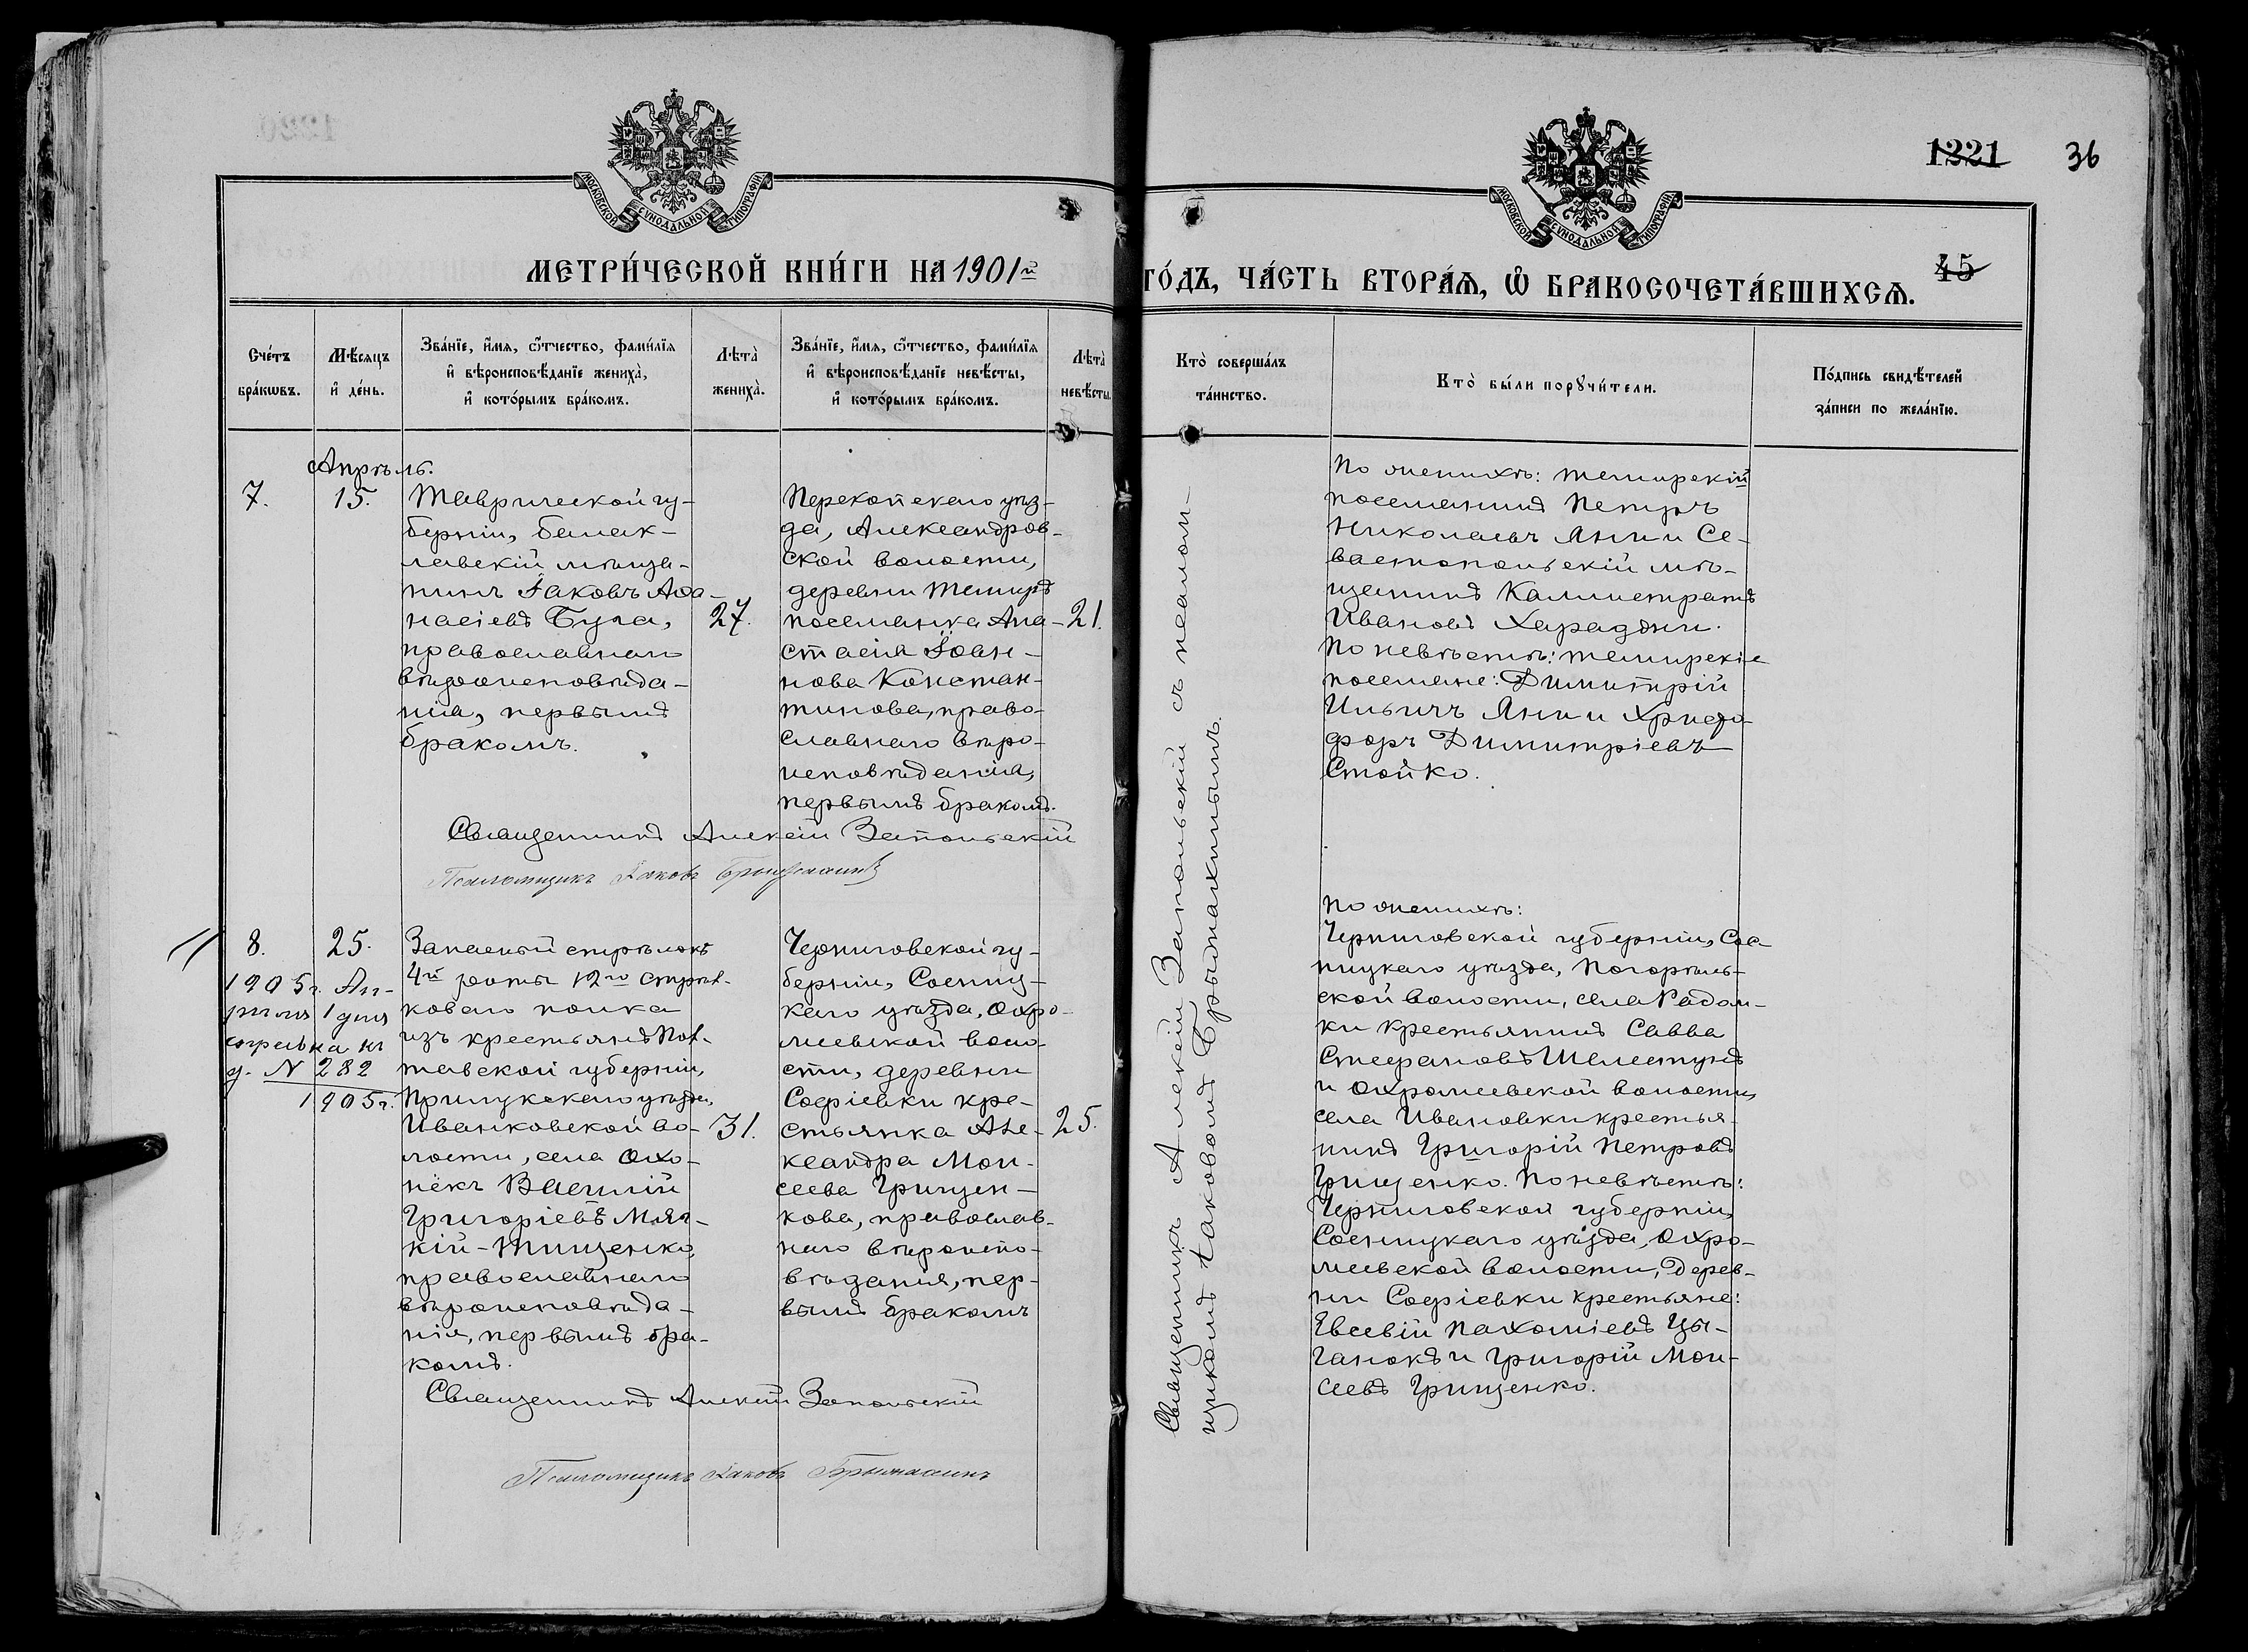 1221
36
МОСКОВСКОЙ СУНОДАЛЬНОЙ ТИПОГРАФІИ
МОСКОВСКОЙ СУНОДАЛЬНОЙ ТИПОГРАФІИ
МЕТРИ́ЧЕСКОЙ КНИ́ГИ НА 1901й
ГО́ДЪ, ЧА́СТЬ ВТОРА́Ѧ, Ѽ БРАКОСОЧЕТА́ВШИХСѦ.
45
Сче́тъ
бра́кѡвъ.
Мѣ́сяцъ
и҆ де́нь.
Зва́нїе, и҆́мѧ, ѻ҆́тчество, фами́лїѧ
и҆ вѣроисповѣ́данїе жениха̀,
и҆ кото́рымъ бра́комъ.
Лѣта̀
жениха̀.
Зва́нїе, и҆́мѧ, ѻ҆́тчество, фами́лїѧ
и҆ вѣроисповѣ́данїе невѣ́сты,
и҆ кото́рымъ бра́комъ.
Лѣта̀
невѣ́сты.
Кто̀ соверша́лъ
та́инство.
Кто̀ бы́ли порꙋчи́тели.
По́дпись свидѣ́телей
за́писи по жела́нїю.
Апрѣль.
7.
15.
Таврической гу-
берніи, балак-
лавскій мѣща-
нинъ Іаковъ Аѳа-
насіевъ Буга,
православнаго
вѣроисповѣда-
нія, первымъ
бракомъ.
27.
Перекопскаго уѣз-
да, Александров-
ской волости,
деревни Темиръ
поселянка Ана-
стасія Іоан-
нова Констан-
тинова, право-
славнаго вѣро-
исповѣданія,
первымъ бракомъ.
21.
Священникъ Алексій Запольскій
Псаломщикъ Іаковъ
По женихѣ: темирскій
поселянинъ Петръ
Николаевъ Яни и Се-
вастопольскій мѣ-
щанинъ Каллистратъ
Ивановъ Хараджи.
По невѣстѣ: темирскіе
поселяне: Димитрій
Ильичъ Яни и Христо-
форъ Димитріевъ
Стойко.
Священникъ Алексій Запольскій съ псалом-
щикомъ Іаковомъ
8.
25.
1905г. Ап-
рѣля 1 дня
справка къ
д. N 282
1905г.
Запасный стрѣлокъ
4й роты 12го стрѣл-
коваго полка
изъ крестьянъ Пол-
тавской губерніи,
Прилукскаго уѣзда,
Иванковской во-
лости, села
Василій
Григоріевъ
кій-Тищенко,
православнаго
вѣроисповѣда-
нія, первымъ бра-
комъ.
31.
Черниговской гу-
берніи, Сосниц-
каго уѣзда, Охра-
міевской воло-
сти, деревни
Софіевки кре-
стьянка Але-
ксандра Мои-
сеева Грищен-
кова, православ-
наго вѣроиспо-
вѣданія, пер-
вымъ бракомъ
25.
Священникъ Алексій Запольскій
Псаломщикъ Іаковъ
По женихѣ:
Черниговской губерніи, Сос-
ницкаго уѣзда, Погорѣль-
ской волости, села Радом-
ки крестьянинъ Савва
Стефановъ Шелестунъ
и Охраміевской волости,
села Ивановки крестья-
нинъ Григорій Петровъ
Грищенко. По невѣстѣ:
Черниговской губерніи,
Сосницкаго уѣзда, Охра-
міевской волости, дерев-
ни Софіевки крестьяне:
Евсевій Пахоміевъ Цы-
ганокъ и Григорій Мои-
сеевъ Грищенко.